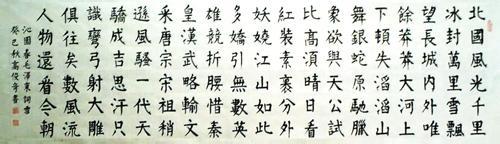 北國風光千里
冰封萬里雪飄
望長城內外唯
餘莽莽大河上
下頓失滔滔山
舞銀蛇原馳臘
象欲與天公試
比高須晴日看
紅裝素裹分外
妖嬈江山如此
多嬌引無數英
雄競折腰惜秦
皇漢武略輸文
采唐宗宋祖稍
遜風騷一代天
驕成吉思汗只
識彎弓射大雕
俱往矣數風流
人物還看今朝
沁園春毛澤東詞雪
癸巳秋高俊奇書